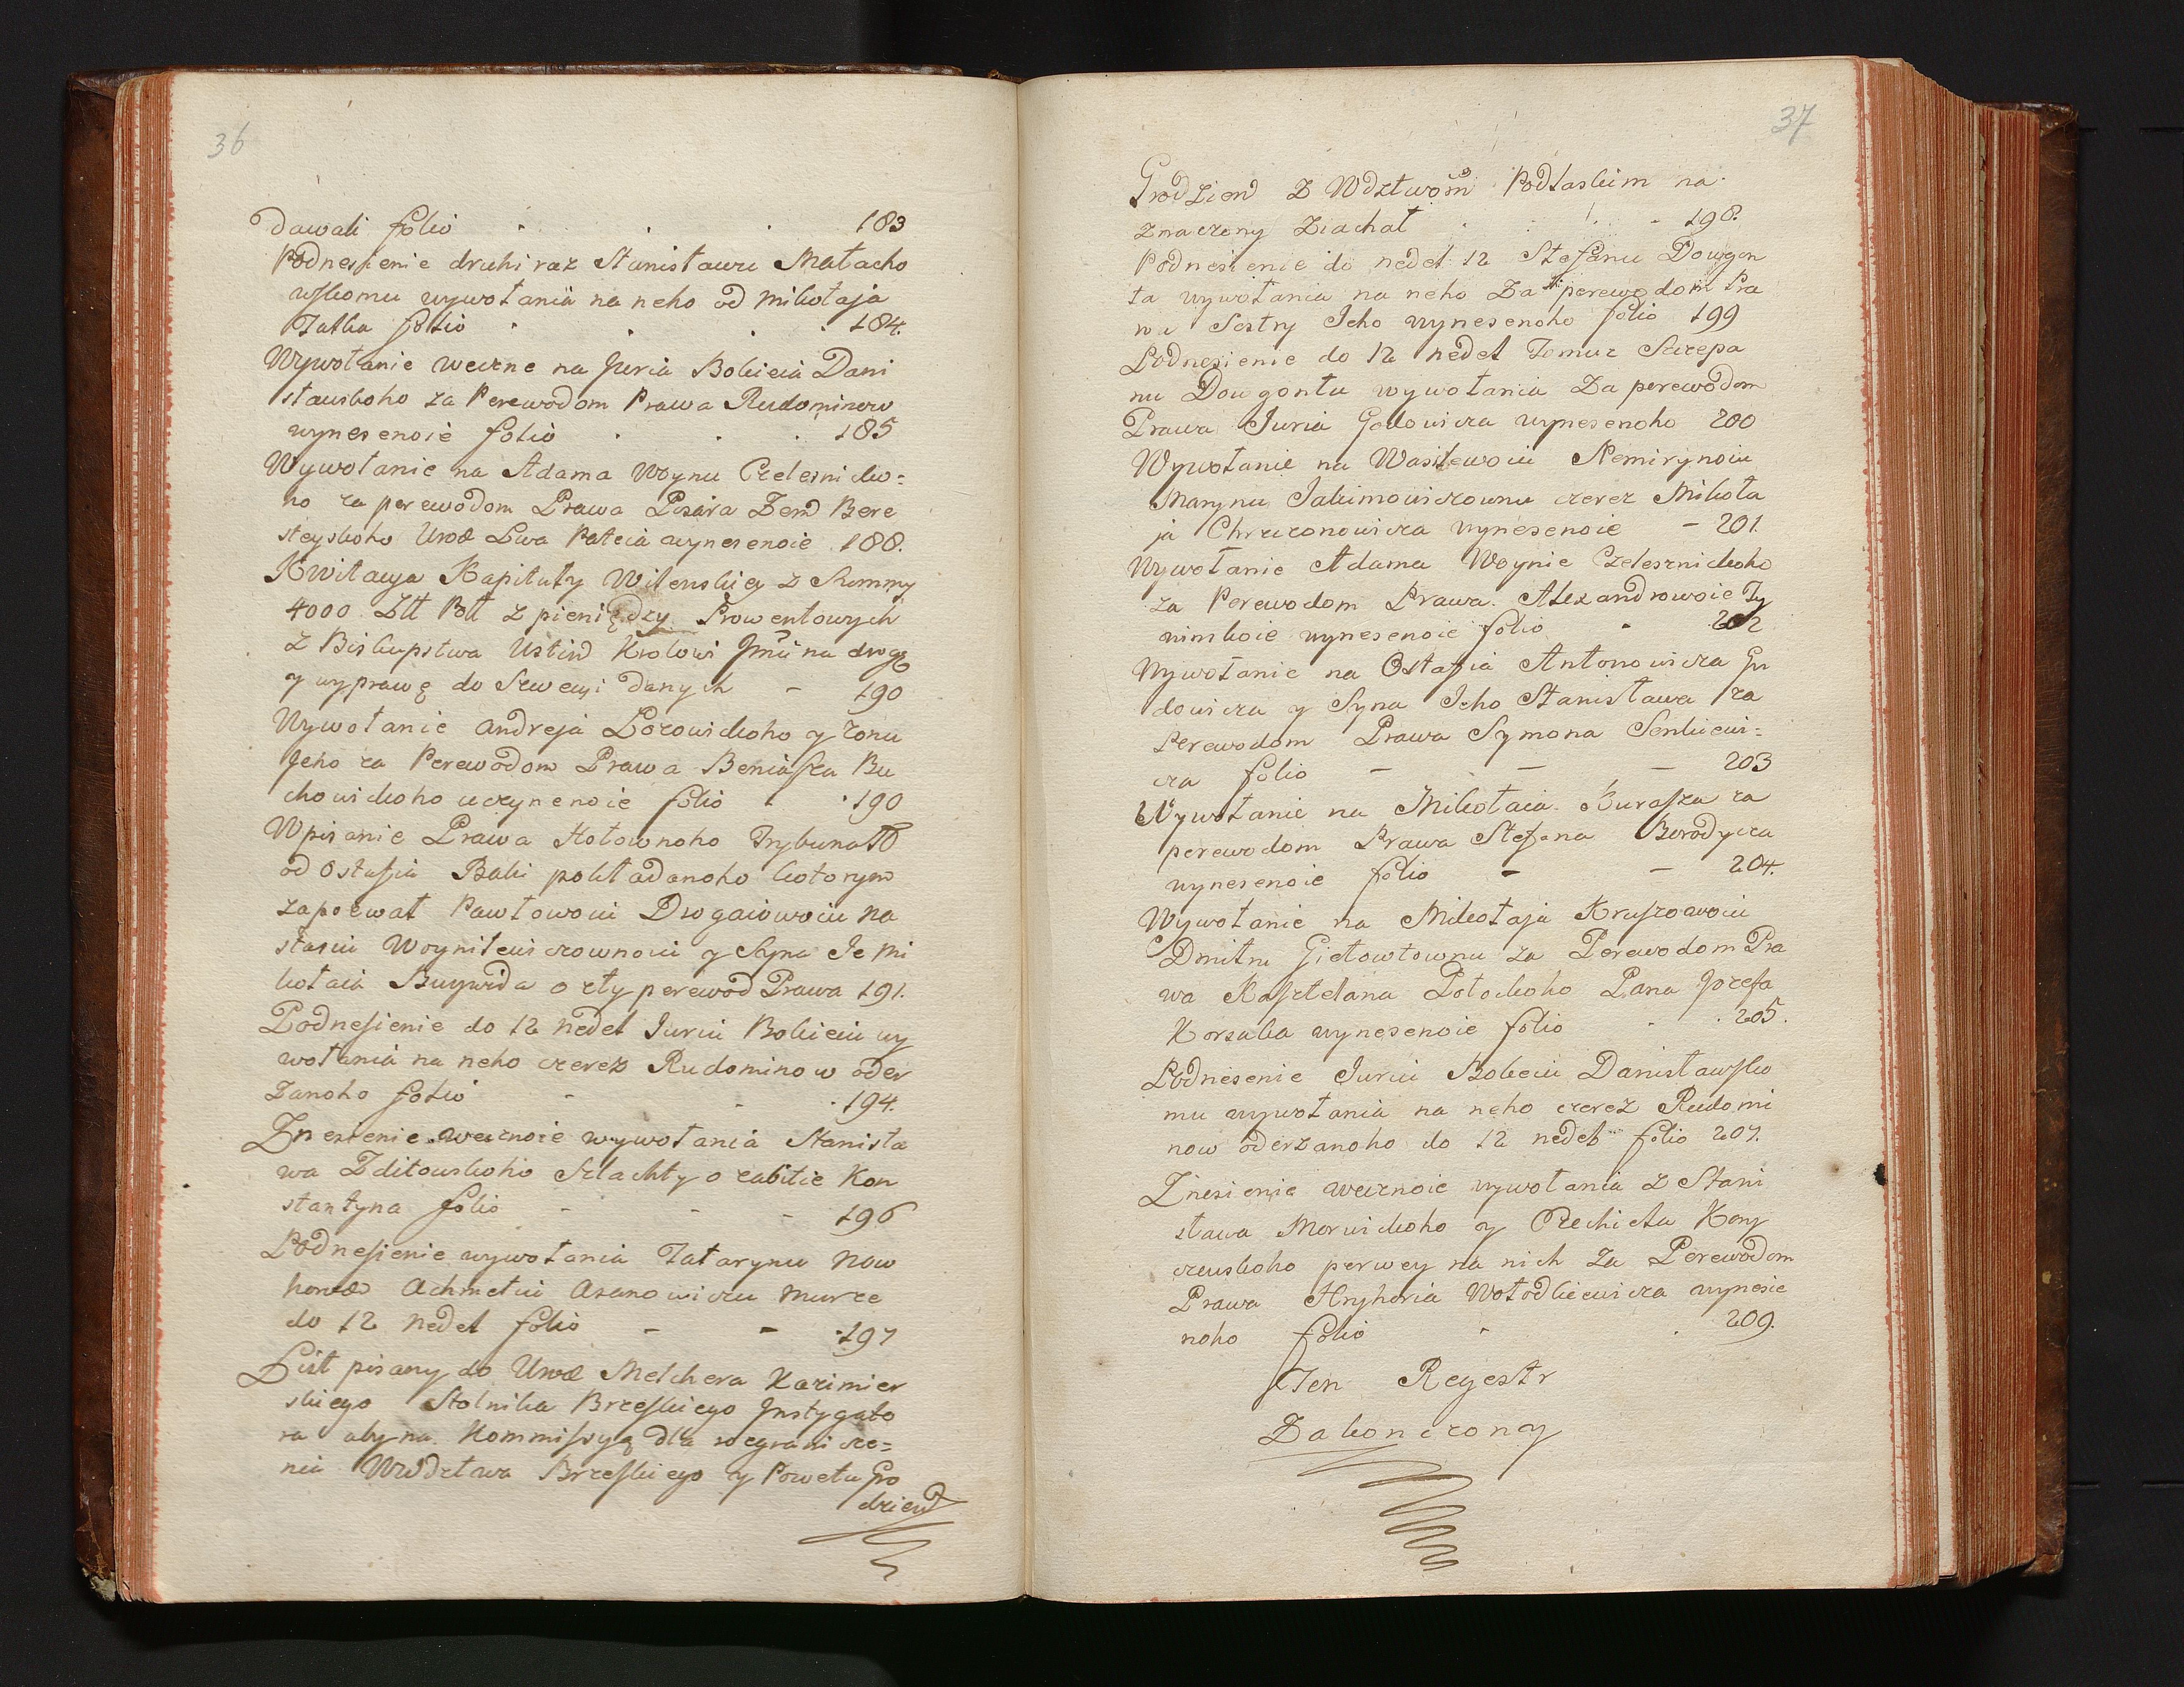 36
dawali folio . . . 183
Podnesienie druhi raz Stanisławu Małacho
wskomu wywołania na neho od Mikołaja
Jatka folio . . . 184.
Wywołanie weczne na Juria Bokieia Dani
sławskoho za Perewodom Prawa Rudominow
wynesenoie folio . . . 185
Wywołanie na Adama Woynu Czelesnicko=
ho za perewodom Prawa Pisara Zem Bere
steyskoho Uroz Lwa Pateia wynesenoie 188.
Kwitacya Kapituły Wilenskiey z Summy
4000 Złł Poll z pieniędzy Prowentowych
z Biskupstwa Krolowi Jmu na drogę
y wyprawę do Szwecyi danych - 190
Wywołanie Andreja Łozowickoho y zonu
Jeho za Perewodom Prawa Beniasza Bu
chowickoho uczynenoie folio . . 190
Wpisanie Prawa Hołownoho Trybunału
od Ostafia Baki pokładanoho kotorym
zapozwał Pawłowoiu Drogaiowoiu Na
stasiu Woyniłowiczownoiu y Syna Je Mi
kołaia Buywida o zły perewod Prawa 191.
Podnesienie do 12 nedel Juriu Bokieiu wy
wołania na neho czerez Rudominow oder
zanoho folio - - . 194.
Znesenie wecznoie wywołania Stanisła
wa Zditowskoho Szlachty o zabitie Kon
stantyna folio - - - 196
Podnesienie wywołania Tatarynu Now
horod Achmetiu Asanowiczu Murze
do 12 nedel folio - - . 197
List pisany do Uroz Melchera Kazimier
skiego Stolnika Brzeskiego Instygato
ra aby na Kommissyą dla rozgranicze=
nia Wdztwa Brzeskiego y Powetu Gro
dzien
37
Grodzien z Wdztwom Podlaskim na
znaczony Ziachał . . . - 198.
Podnesienie do nedel 12 Stefanu Dowgon
ta wywołania na neho za perewodom Pra
wa Sestry Jeho wynesenoho folio 199
Podnesienie do 12 nedel Tomuz Szczepa
nu Dowgontu wywołania za perewodom
Prawa Juria Godowicza wynesenoho 200
Wywołanie na Wasilewoiu Nemirynoiu
Marynu Jakimowiczownu czerez Mikoła
ja Chrzczonowicza wynesenoie - 201.
Wywołanie Adama Woynie Czelesznickoho
za Perewodom Prawa Alexandrowoie Ty
minskoie wynesenoie folio - 202
Wywołanie na Ostafia Antonowicza Gu
dowicza y Syna Jeho Stanisława za
Perewodom Prawa Symona Senkiewi=
cza folio - - - 203
Wywołanie na Mikołaia Kurasza za
perewodom Prawa Stefana Borodycza
wynesenoie folio - - 204.
Wywołanie na Mikołaja Kruszowoiu
Dmitru Giełowtownu za Perewodom Pra
wa Kasztelana Połockoho Pana Jozefa
Korsaka wynesenoie folio . . 205.
Podnesenie Juriu Bokeiu Danisławsko
mu wywołania na neho czerez Rudomi
now oderzanoho do 12 nedel folio 207.
Znesienie wecznoie wywołania z Stani
sława Morwickoho y Kony
czewskoho perwey na nich za Perewodom
Prawa Hryhoria Wołodkiewicza wynesie
noho folio . . 209.
Ten Regestr
Zakonczony